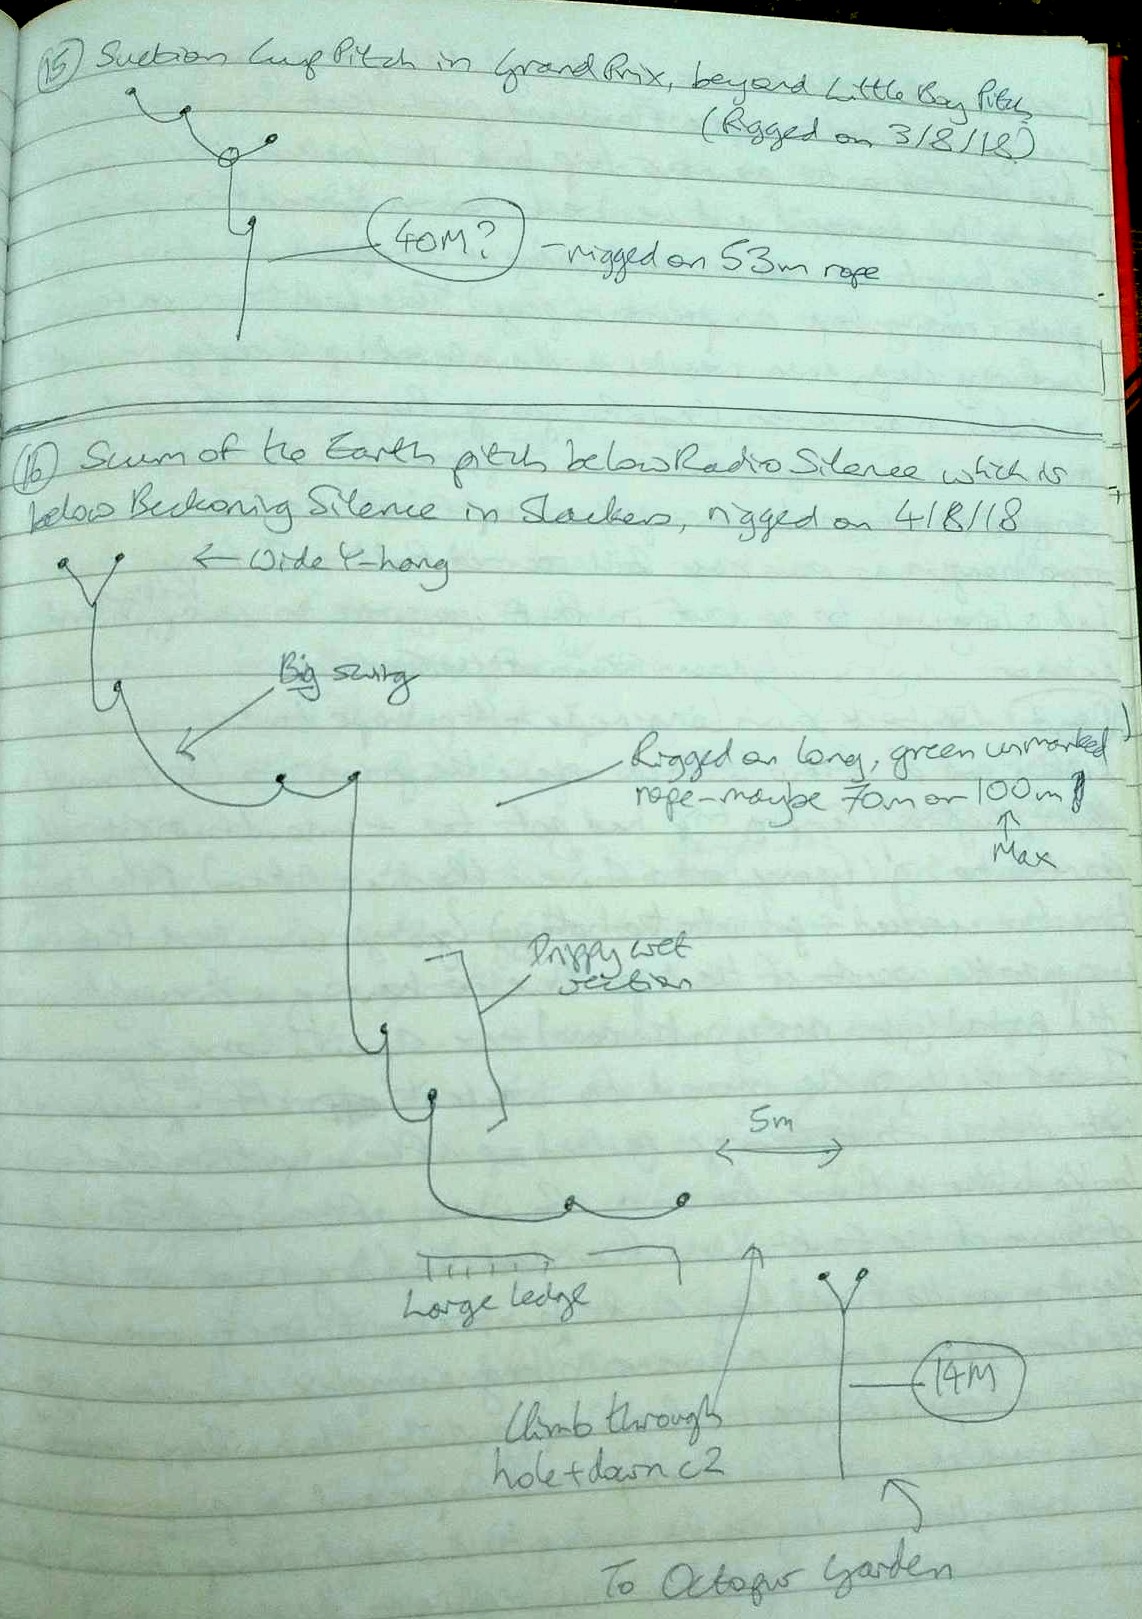 15 Suction Cup Pitch in Grand Prix, beyond Little Boy Pitch
(Rigged on 3/8/18)
40M? - rigged on 53m rope
16 Scum of the Earth pitch below Radio Silence which is
below Beckoning Silence in Slackers, rigged on 4/8/18
← Wide Y-hang
Big swing
Rigged on long, green unmarked
rope - maybe 70m or 100m
↑
Max
Drippy wet
section
5m
Large ledge
14M
Climb through
hole + down c2
To Octopus Garden